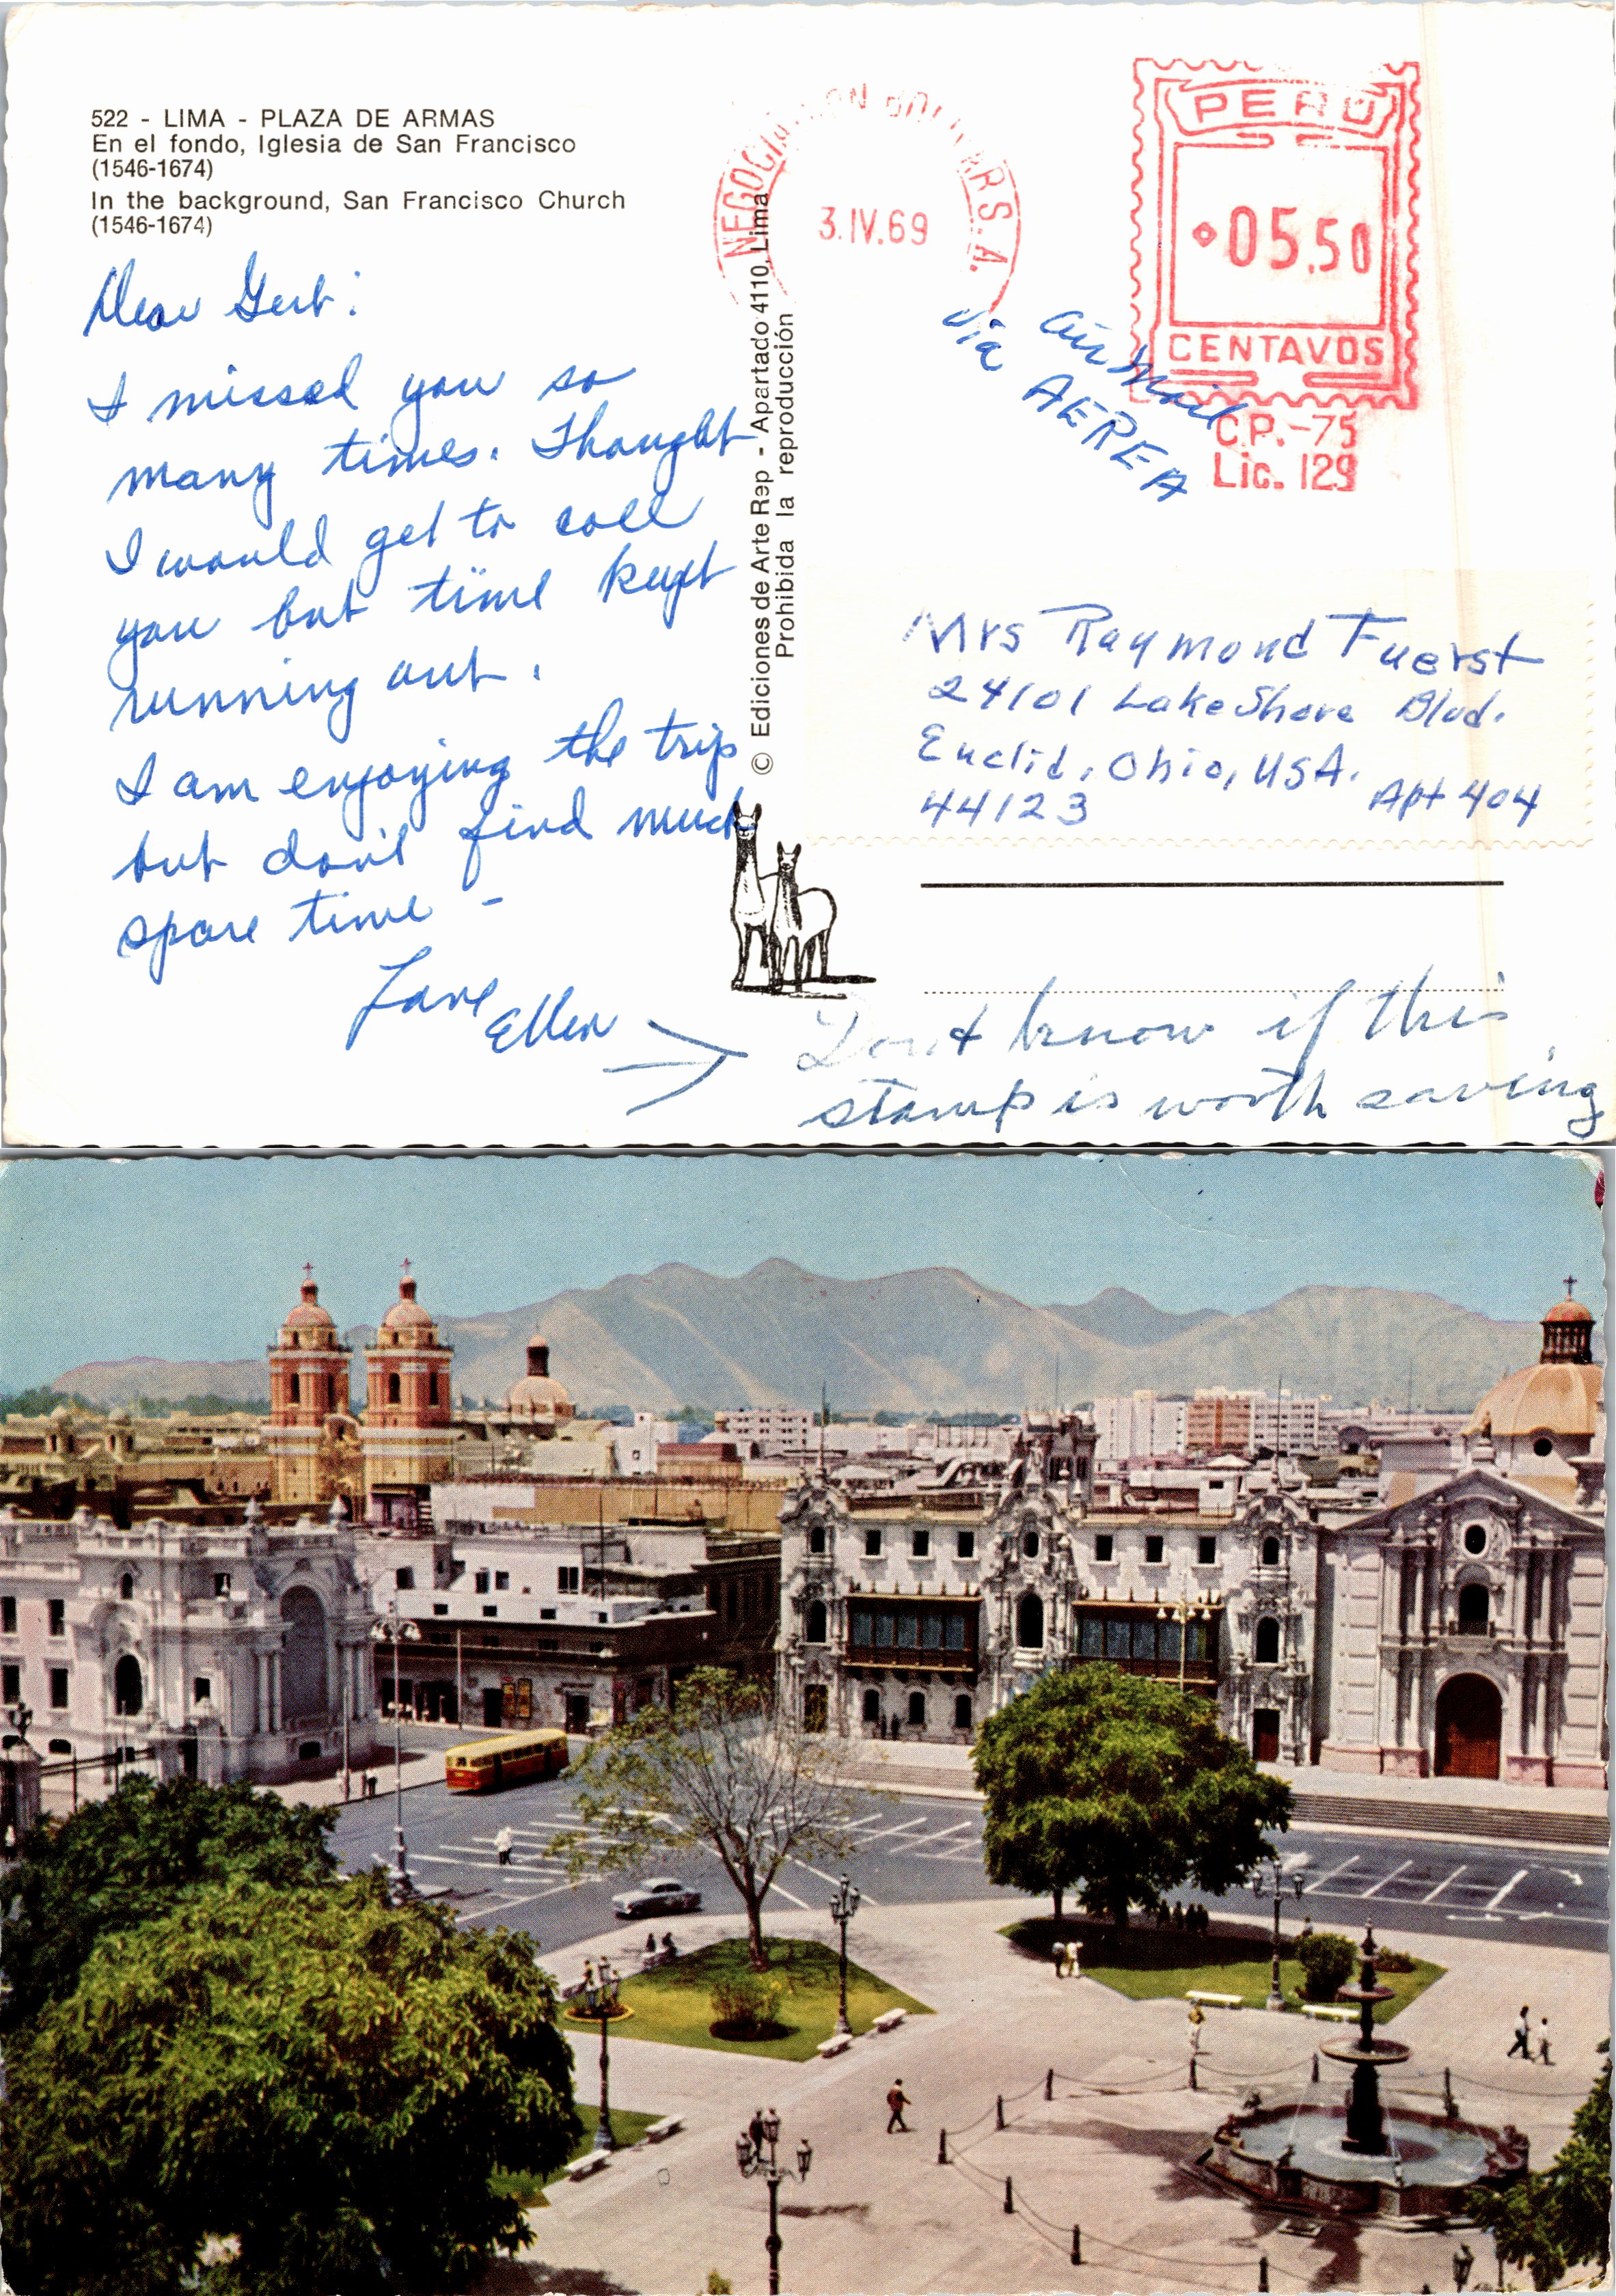 522 - LIMA - PLAZA DE ARMAS
En el fondo, Iglesia de San Francisco
(1546-1674)
In the background, San Francisco Church
(1546-1674)
Dear Gert:
I missed you so
many times. Thought
I would get to call
you but time kept
running out.
I am enjoying the trip
but don't find much
spare time -
Love
Ellen
© Ediciones de Arte Rep - Apartado 4110, Lima
Prohibida la reproducción
S.A.
3.IV.69
PERU
05.50
CENTAVOS
C.P.-75
Lic. 129
Air Mail
via AEREA
Mrs Raymond Fuerst
24101 Lake Shore Blvd.
Euclid, Ohio, USA.
44123 Apt 404
Don't know if this
stamp is worth saving